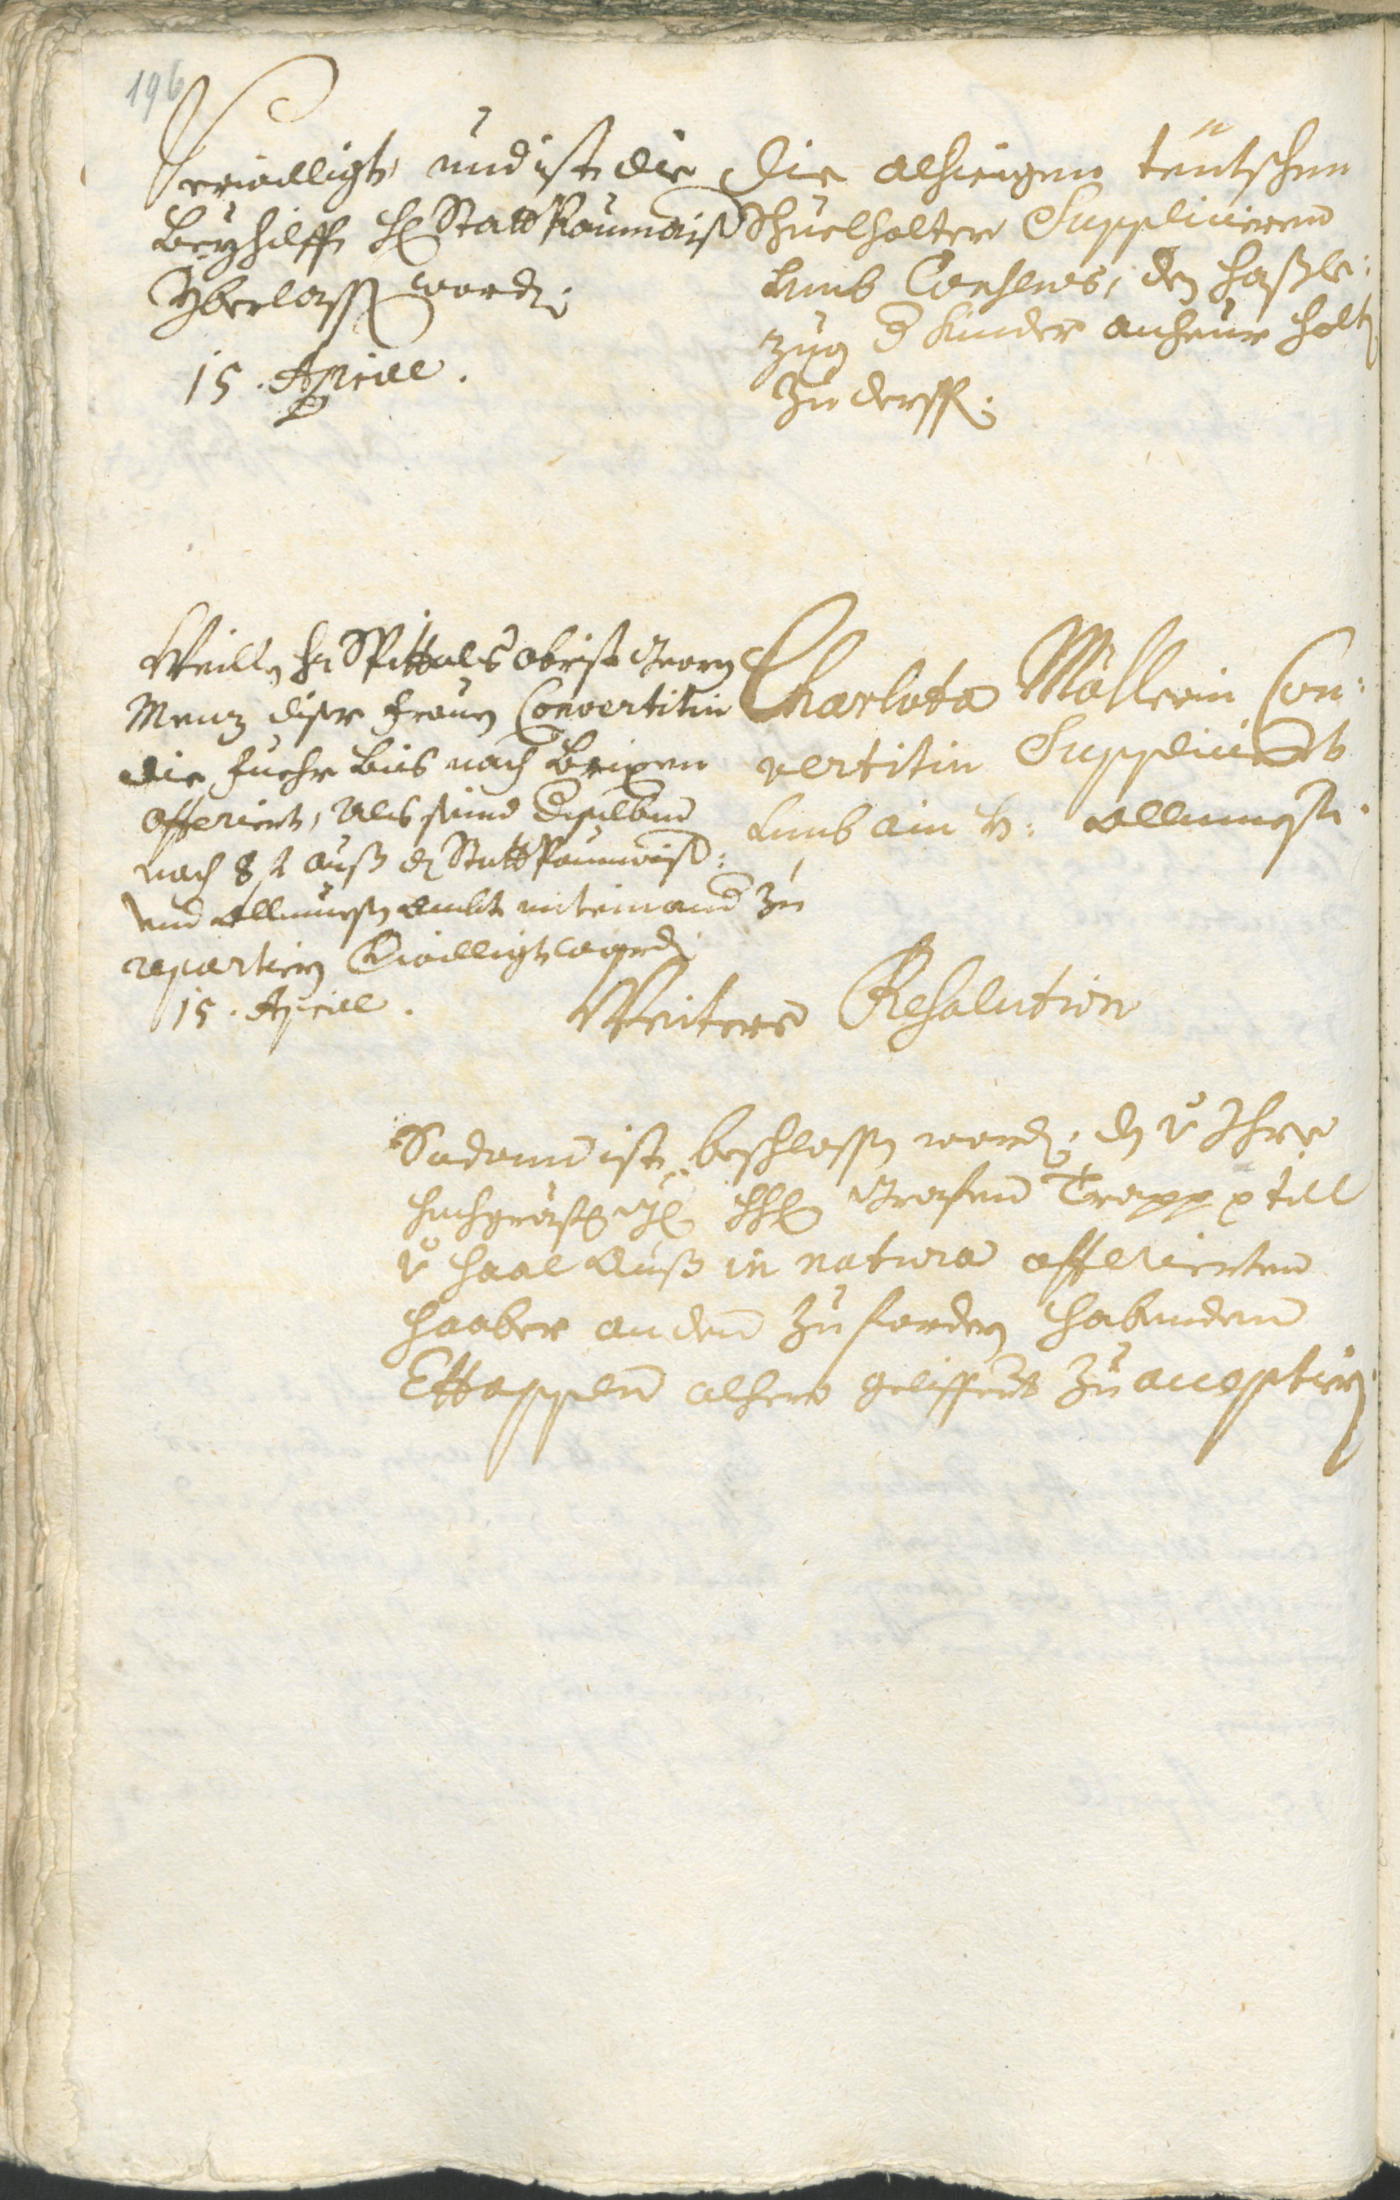 196
Verwilligt, und ist die
Beyhilff H: Statt Paumaister
Yberlassen worden.
15. Aprill.
Die alhieigen teütschen
Schuelhalter Supplicieren
umb Consens, den
zug d Kinder anheur halten
zu derffen.
Weillen H: Spittals obrist Georg
Menz diser Frauen Convertitin
die Fuehr bis nach Brixen
offeriert, Als seind derselben
nach 8 f auß der Statt Paumaister:
und Allmuesen Ambt miteinand zu
repartiern Verwilligt worden.
15. Aprill.
Charlota Möllerin Con:
vertitin Suppliciert
umb ain h: Allmuesen.
Weitere Resolution
Sodann ist beschlossen worden, den von Ihro
Hochgräfl: HH: Grafen Trapp p till
von Haal Auß in natura offerierten
Haaber an den zu fordern habenden
Ettappen alhero geliffert zu acceptiern.